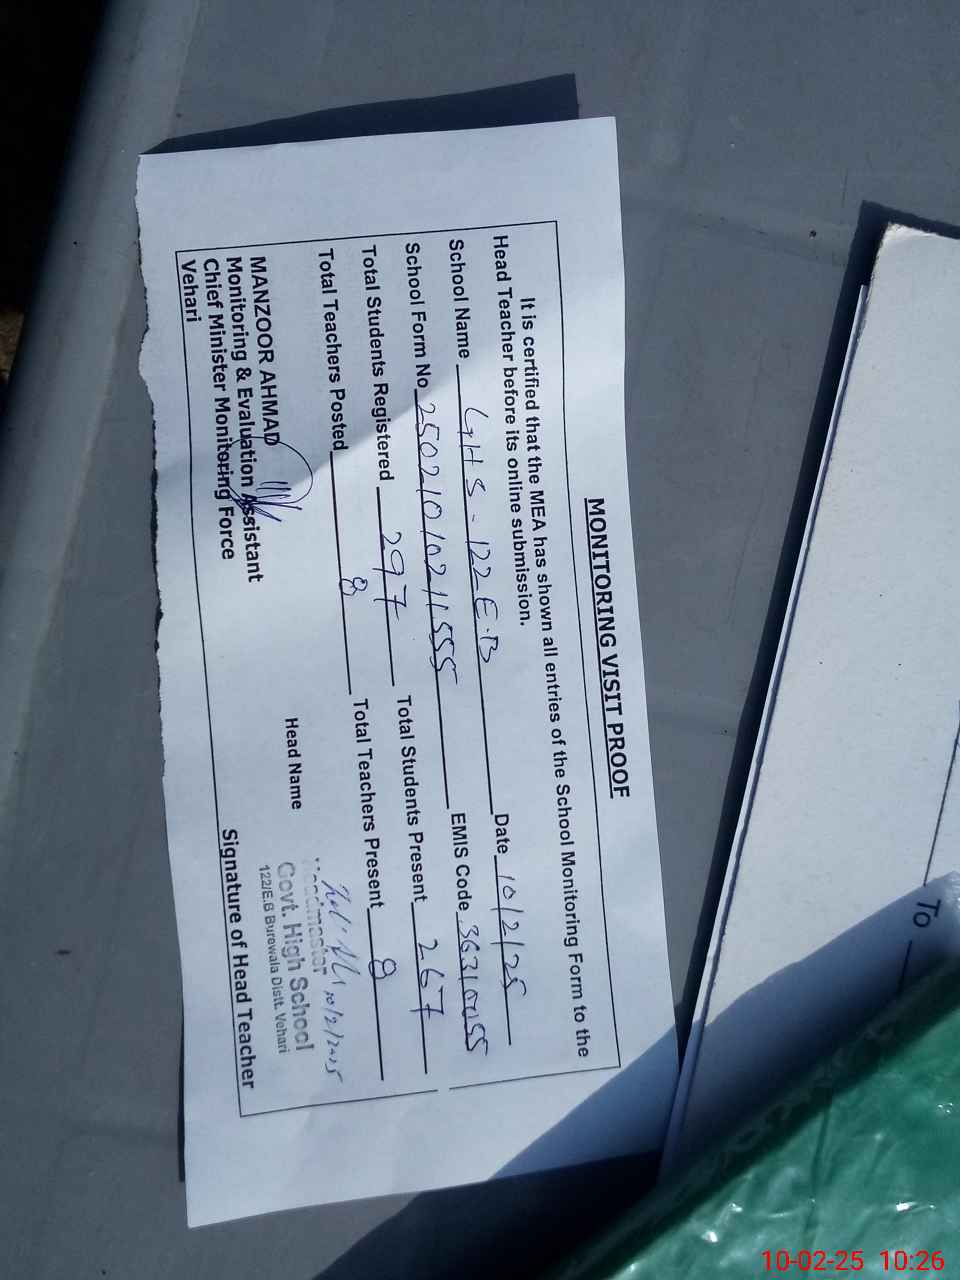 MONITORING VISIT PROOF
It is certified that the MEA has shown all entries of the School Monitoring Form to the
Head Teacher before its online submission.
School Name GHS-122 E.B Date 10/2/25
School Form No 25021010211555 EMIS Code 36310055
Total Students Registered 297 Total Students Present 267
Total Teachers Posted 8 Total Teachers Present 8
10/2/2025
Headmaster
Head Name Govt. High School
122/E.B Burewala Distt. Vehari
MANZOOR AHMAD
Monitoring & Evaluation Assistant
Chief Minister Monitoring Force
Vehari
Signature of Head Teacher
To
10-02-25 10:26